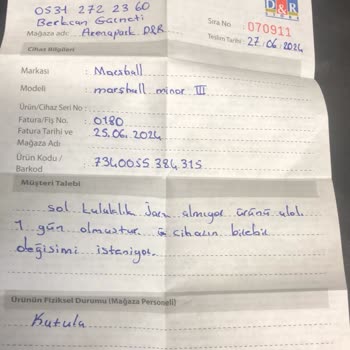 0531 272 23 60
Berkcan Garneti
Mağaza adı: Arenapark D&R
D&R
Sıra No : 070911
Teslim Tarihi : 27.06.2024
Cihaz Bilgileri
Markası : Marshall
Modeli : marshall minor III
Ürün/Cihaz Seri No :
Fatura/Fiş No. : 0180
Fatura Tarihi ve : 25.06.2024
Mağaza Adı
Ürün Kodu / : 7340055384315
Barkod
Müşteri Talebi
sol kulaklık şarj almıyor ürünü alalı
1 gün olmuştur. cihazın birebir
değişimi isteniyor.
Ürünün Fiziksel Durumu (Mağaza Personeli)
Kutulu